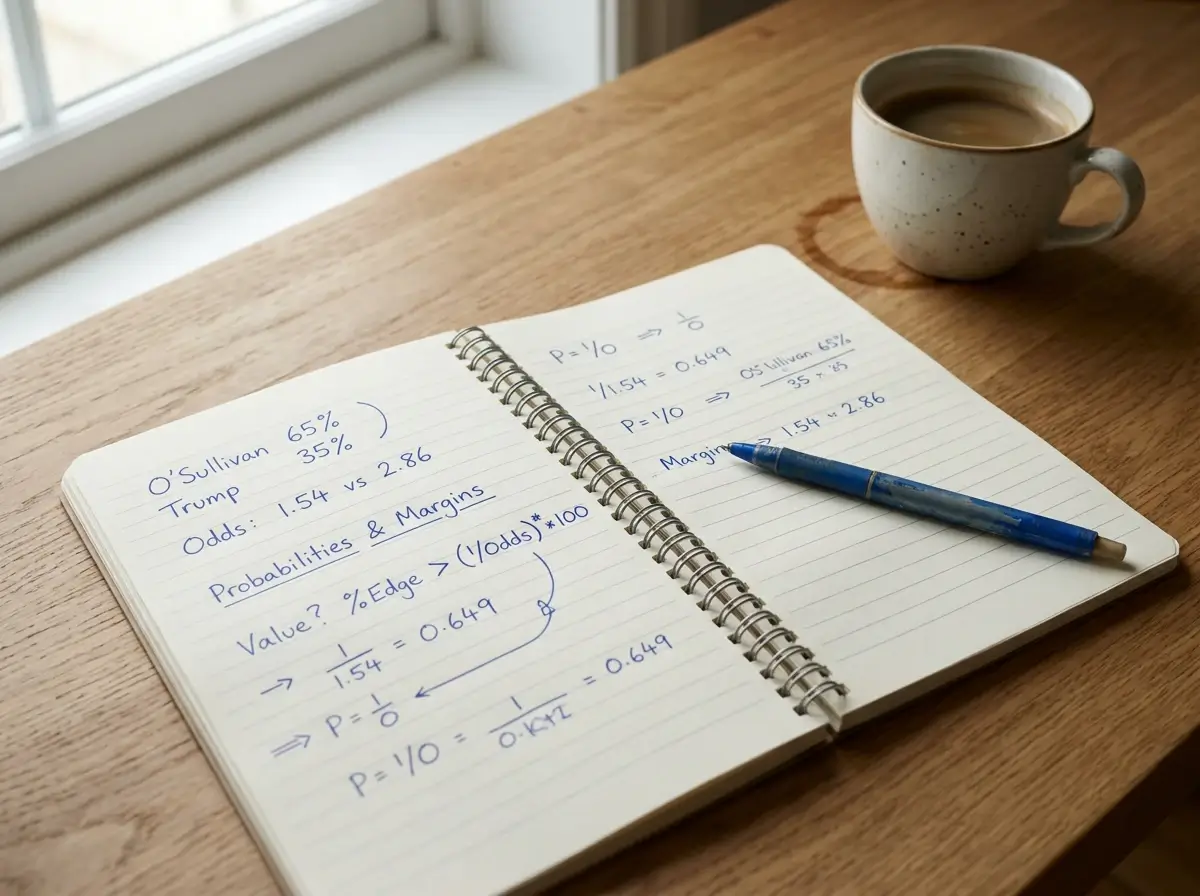 O'Sullivan 65%
Trump 35%
Odds: 1.54 vs 2.86
Probabilities & Margins
Value? %Edge > (1/Odds)* *100
→ 1/1.54 = 0.649
⇒ P = 1/O
P = 1/O = 1/ = 0.649
P = 1/O ⇒ 1/O
1/1.54 = 0.649
P = 1/O ⇒ 65% / 35 × 35
Margin 1.54 2.86